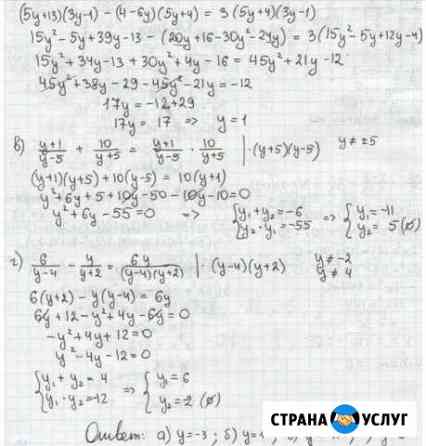 (5y+13)(3y-1) - (4-6y)(5y+4) = 3(5y+4)(3y-1)
15y²-5y+39y-13 - (20y+16-30y²-24y) = 3(15y²-5y+12y-4)
15y²+34y-13+30y²+4y-16 = 45y²+21y-12
45y²+38y-29-45y²-21y=-12
17y=-12+29
17y = 17 => y=1
в) (y+1)/(y-5) + 10/(y+5) = (y+1)/(y-5) · 10/(y+5) | ·(y+5)(y-5) y≠±5
(y+1)(y+5)+10(y-5) = 10(y+1)
y²+6y+5+10y-50-10y-10=0
y²+6y-55=0 => { y₁+y₂=-6 y₂·y₁=-55 => { y₁=-11 y₂=5 (∅)
г) 6/(y-4) - y/(y+2) = 6y/((y-4)(y+2)) | ·(y-4)(y+2) y≠-2 y≠4
6(y+2)-y(y-4)=6y
6y+12-y²+4y-6y=0
-y²+4y+12=0
y²-4y-12=0
{ y₁+y₂=4 y₁·y₂=-12 => { y₁=6 y₂=2 (∅)
Ответ: а) y=-3; б) y=1
СТРАНА УСЛУГ